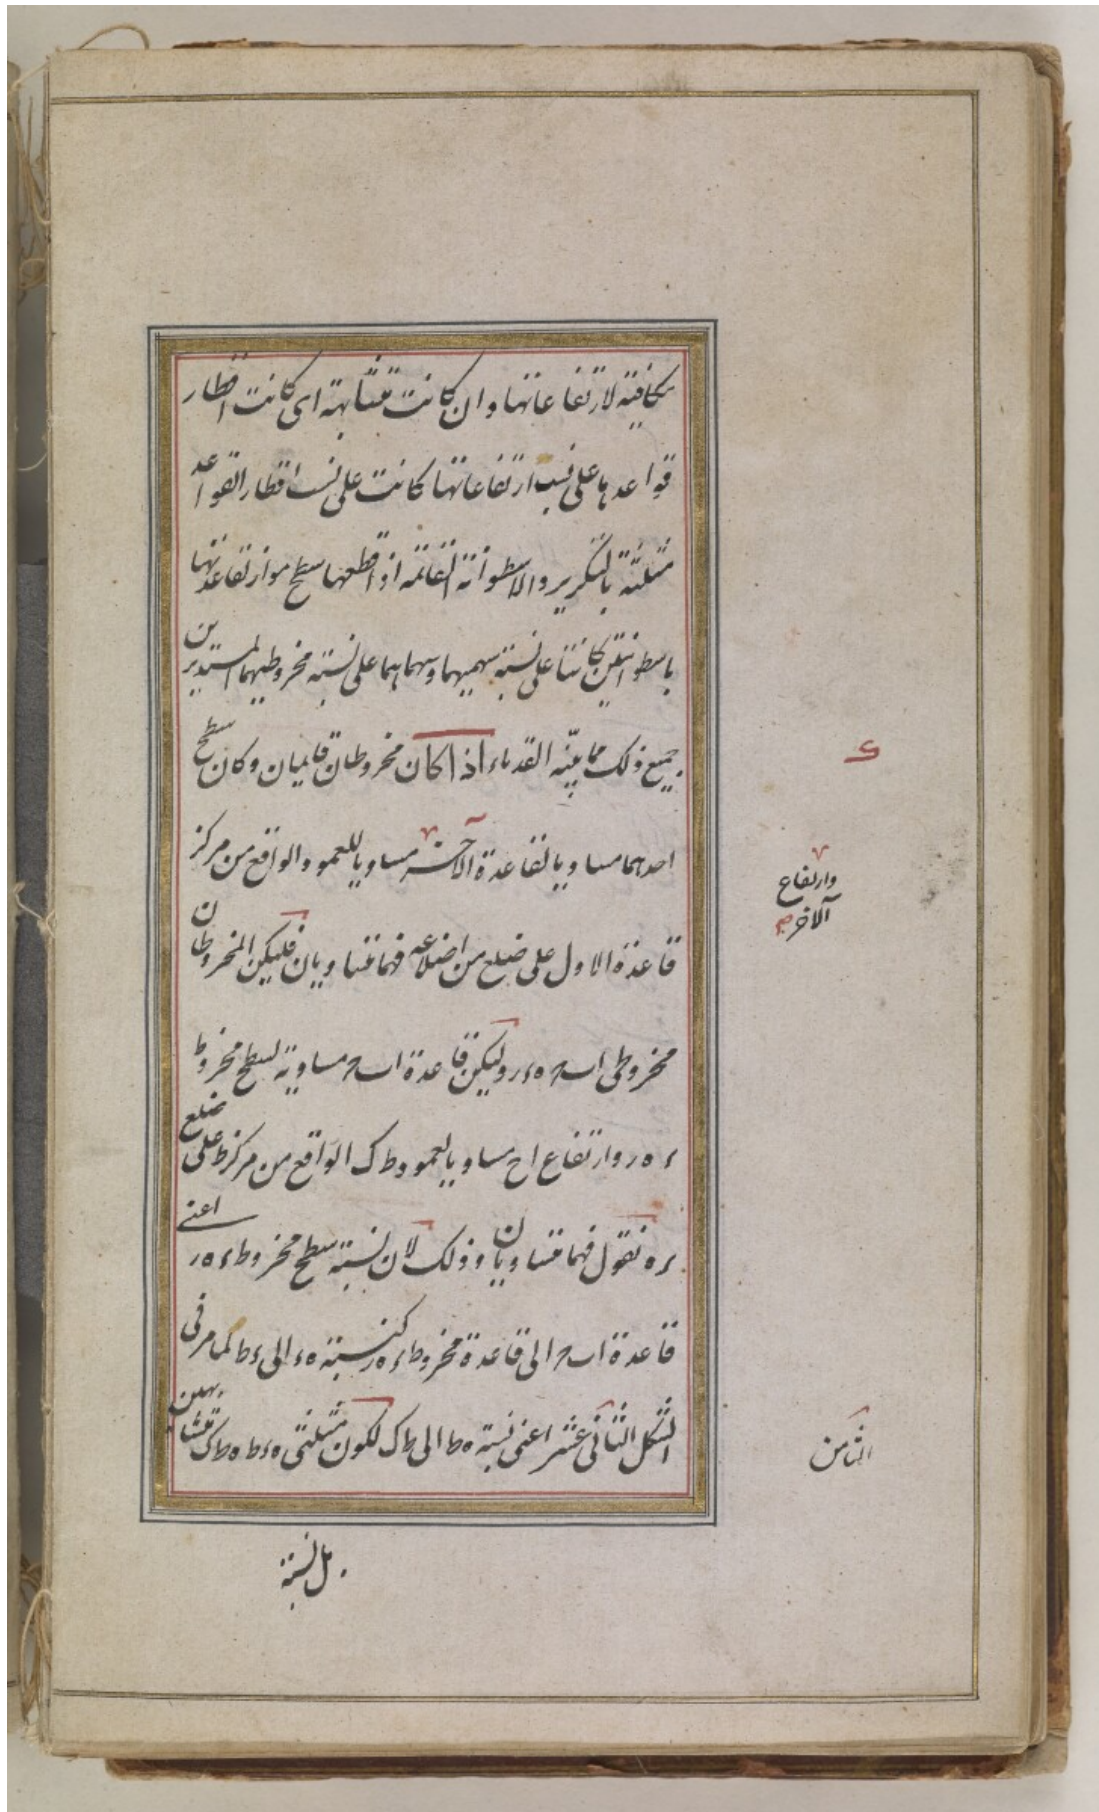 مكافية لارتفاعاتها وان كانت متشابهة اى كانت اقطار
قواعدها على نسب ارتفاعاتها كانت على نسب اقطار القواعد
مثلثة بالتكرير والاسطوانة القائمة اذا قطعها سطح مواز لقاعدتها
باسطوانتين كانتا على نسبة سهميهما وسهماهما على نسبة مخروطيهما المستديرين
جميع ذلك مما بيّنه القدماء اذا كان مخروطان قايمان وكان سطح
احدهما مساويا لقاعدة الاخر مساويا للعمود الواقع من مركز
قاعدة الاول على ضلع من اضلاعه فهما متساويان فليكن المخروطان
مخروطى ابح ءهر وليكن قاعدة ابح مساوية لسطح مخروط
ءهر وارتفاع اح مساويا لعمود طك الواقع من مركز ط على ضلع
ءه نقول فهما متساويان وذلك لان نسبة سطح مخروط ءهر اعنى
قاعدة ابح الى قاعدة مخروط ءهر كنسبة هء الى ءط كما مر فى
الشكل الثانى عشر اعنى نسبة هط الى طك لكون مثلثى هءط هطك متشابهين
بل نسبة
ك
وارتفاع
الآخر صح
الثامن